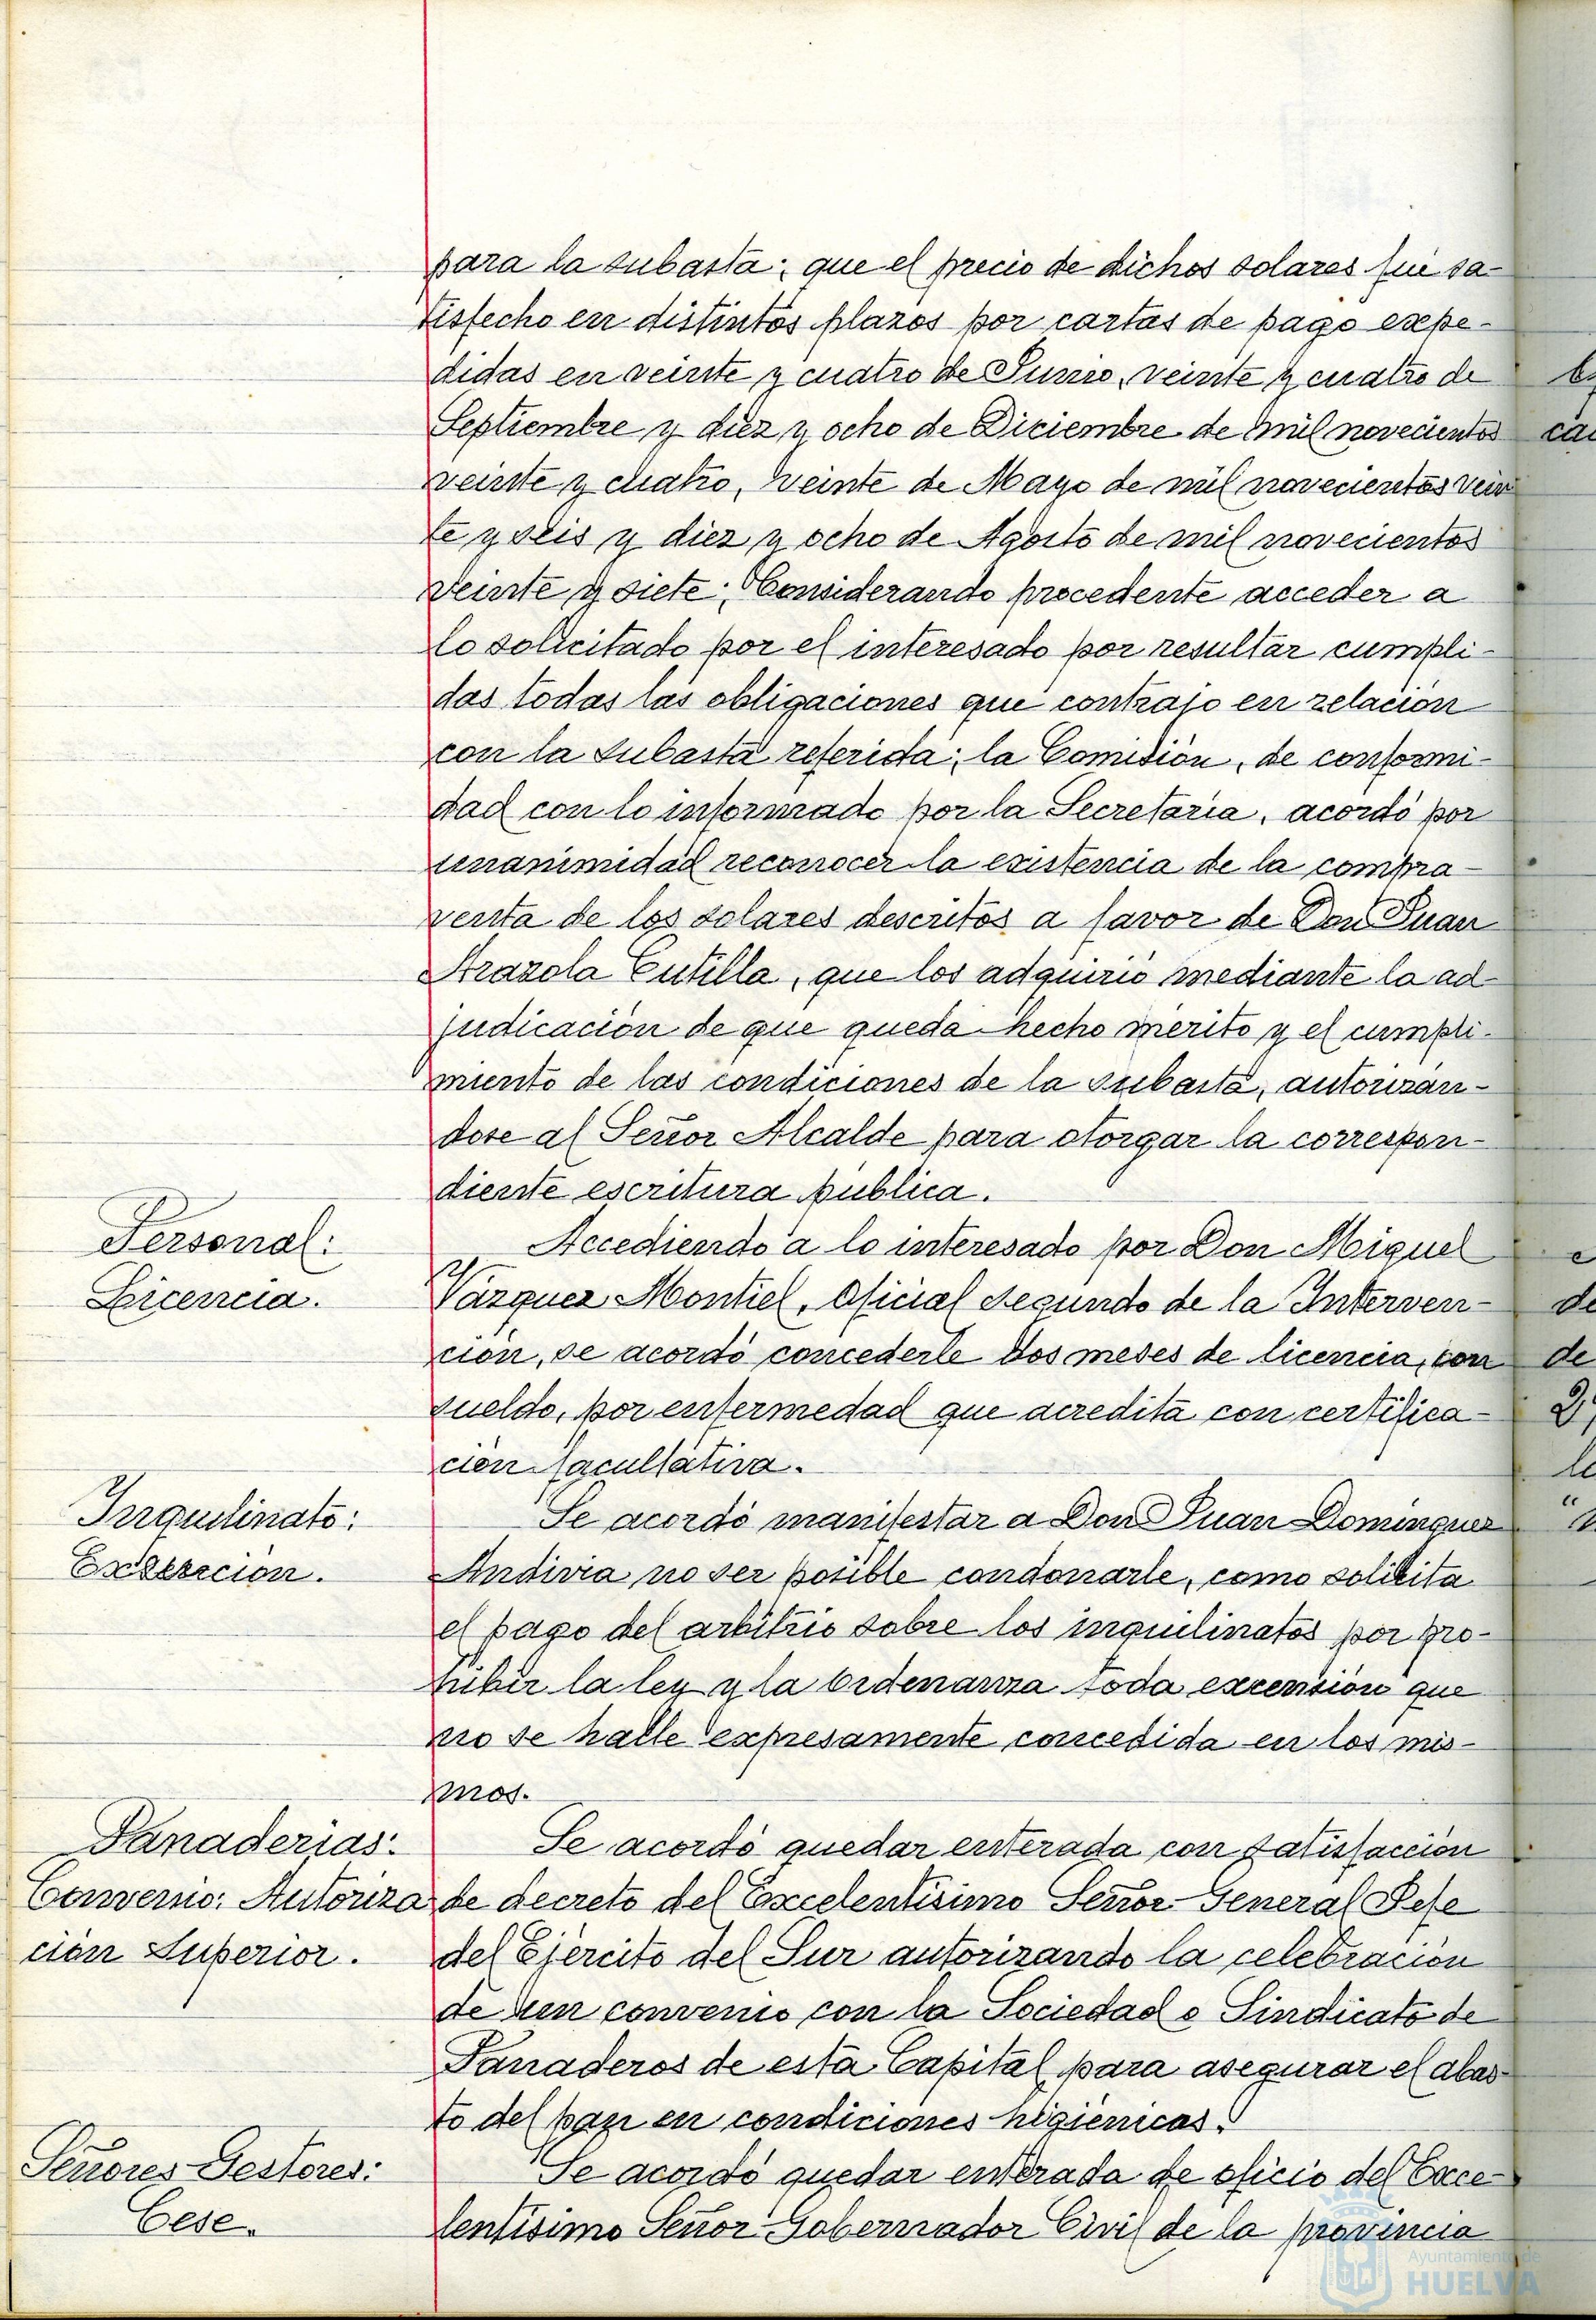 para la subasta; que el precio de dichos solares fue sa-
tisfecho en distintos plazos por cartas de pago expe-
didas en veinte y cuatro de Junio, veinte y cuatro de
Septiembre y diez y ocho de Diciembre de mil novecientos
veinte y cuatro, veinte de Mayo de mil novecientos vein
te y seis y diez y ocho de Agosto de mil novecientos
veinte y siete; Considerando procedente acceder a
lo solicitado por el interesado por resultar cumpli-
das todas las obligaciones que contrajo en relación
con la subasta referida; la Comisión, de conformi-
dad con lo informado por la Secretaria, acordó por
unanimidad reconocer la existencia de la compra-
venta de los solares descritos a favor de Don Juan
Arazola Cutilla, que los adquirió mediante la ad-
judicación de que queda hecho merito y el cumpli-
miento de las condiciones de la subasta, autorizán-
dose al Señor Alcalde para otorgar la correspon-
diente escritura pública.
Personal:
Licencia.
Accediendo a lo interesado por Don Miguel
Vázquez Montiel, Oficial segundo de la Interven-
ción, se acordó concederle dos meses de licencia, con
sueldo, por enfermedad que acredita con certifica-
ción facultativa.
Inquilinato:
Exención.
Se acordó manifestar a Don Juan Dominguez
Andivia no ser posible condonarle, como solicita
el pago del arbitrio sobre los inquilinatos por pro-
hibir la ley y la Ordenanza toda exención que
no se halle expresamente concedida en los mis-
mos.
Panaderias:
Convenio: Autoriza
ción Superior.
Se acordó quedar enterada con satisfacción
de decreto del Excelentísimo Señor General Jefe
del Ejército del Sur autorizando la celebración
de un convenio con la Sociedad o Sindicato de
Panaderos de esta Capital para asegurar el abas-
to del pan en condiciones higiénicas.
Señores Gestores:
Cese.
Se acordó quedar enterada de oficio del Exce-
lentísimo Señor Gobernador Civil de la provincia
Ayuntamiento de
HUELVA